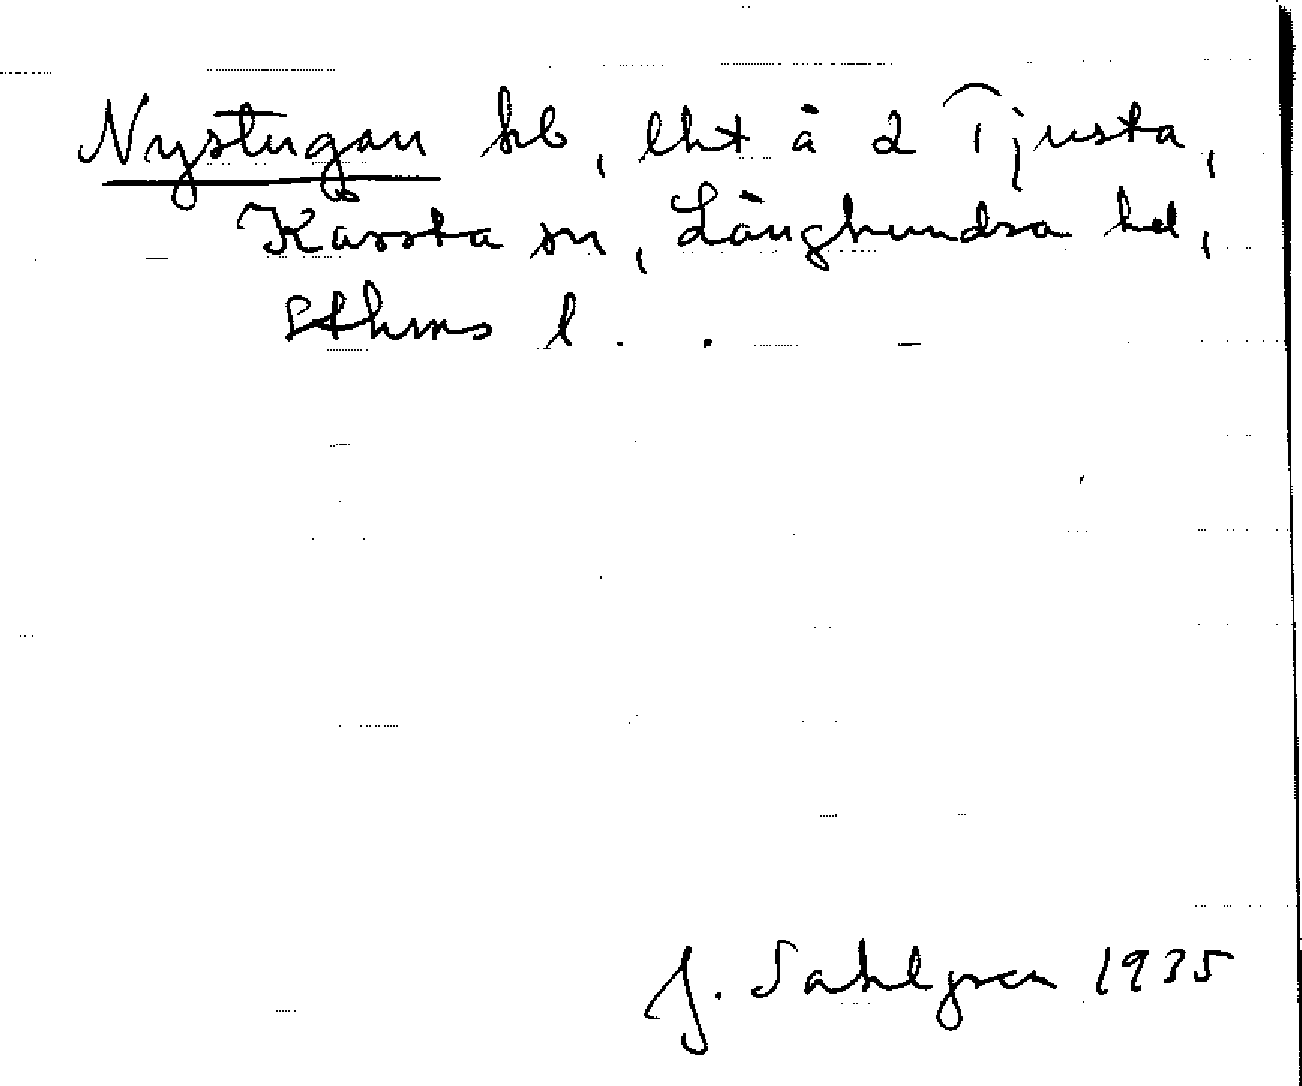 Nystugan hb, lht å 2 Tjusta,
Kårsta sn, Långhundra hd,
Sthms l.
J. Sahlgren 1935